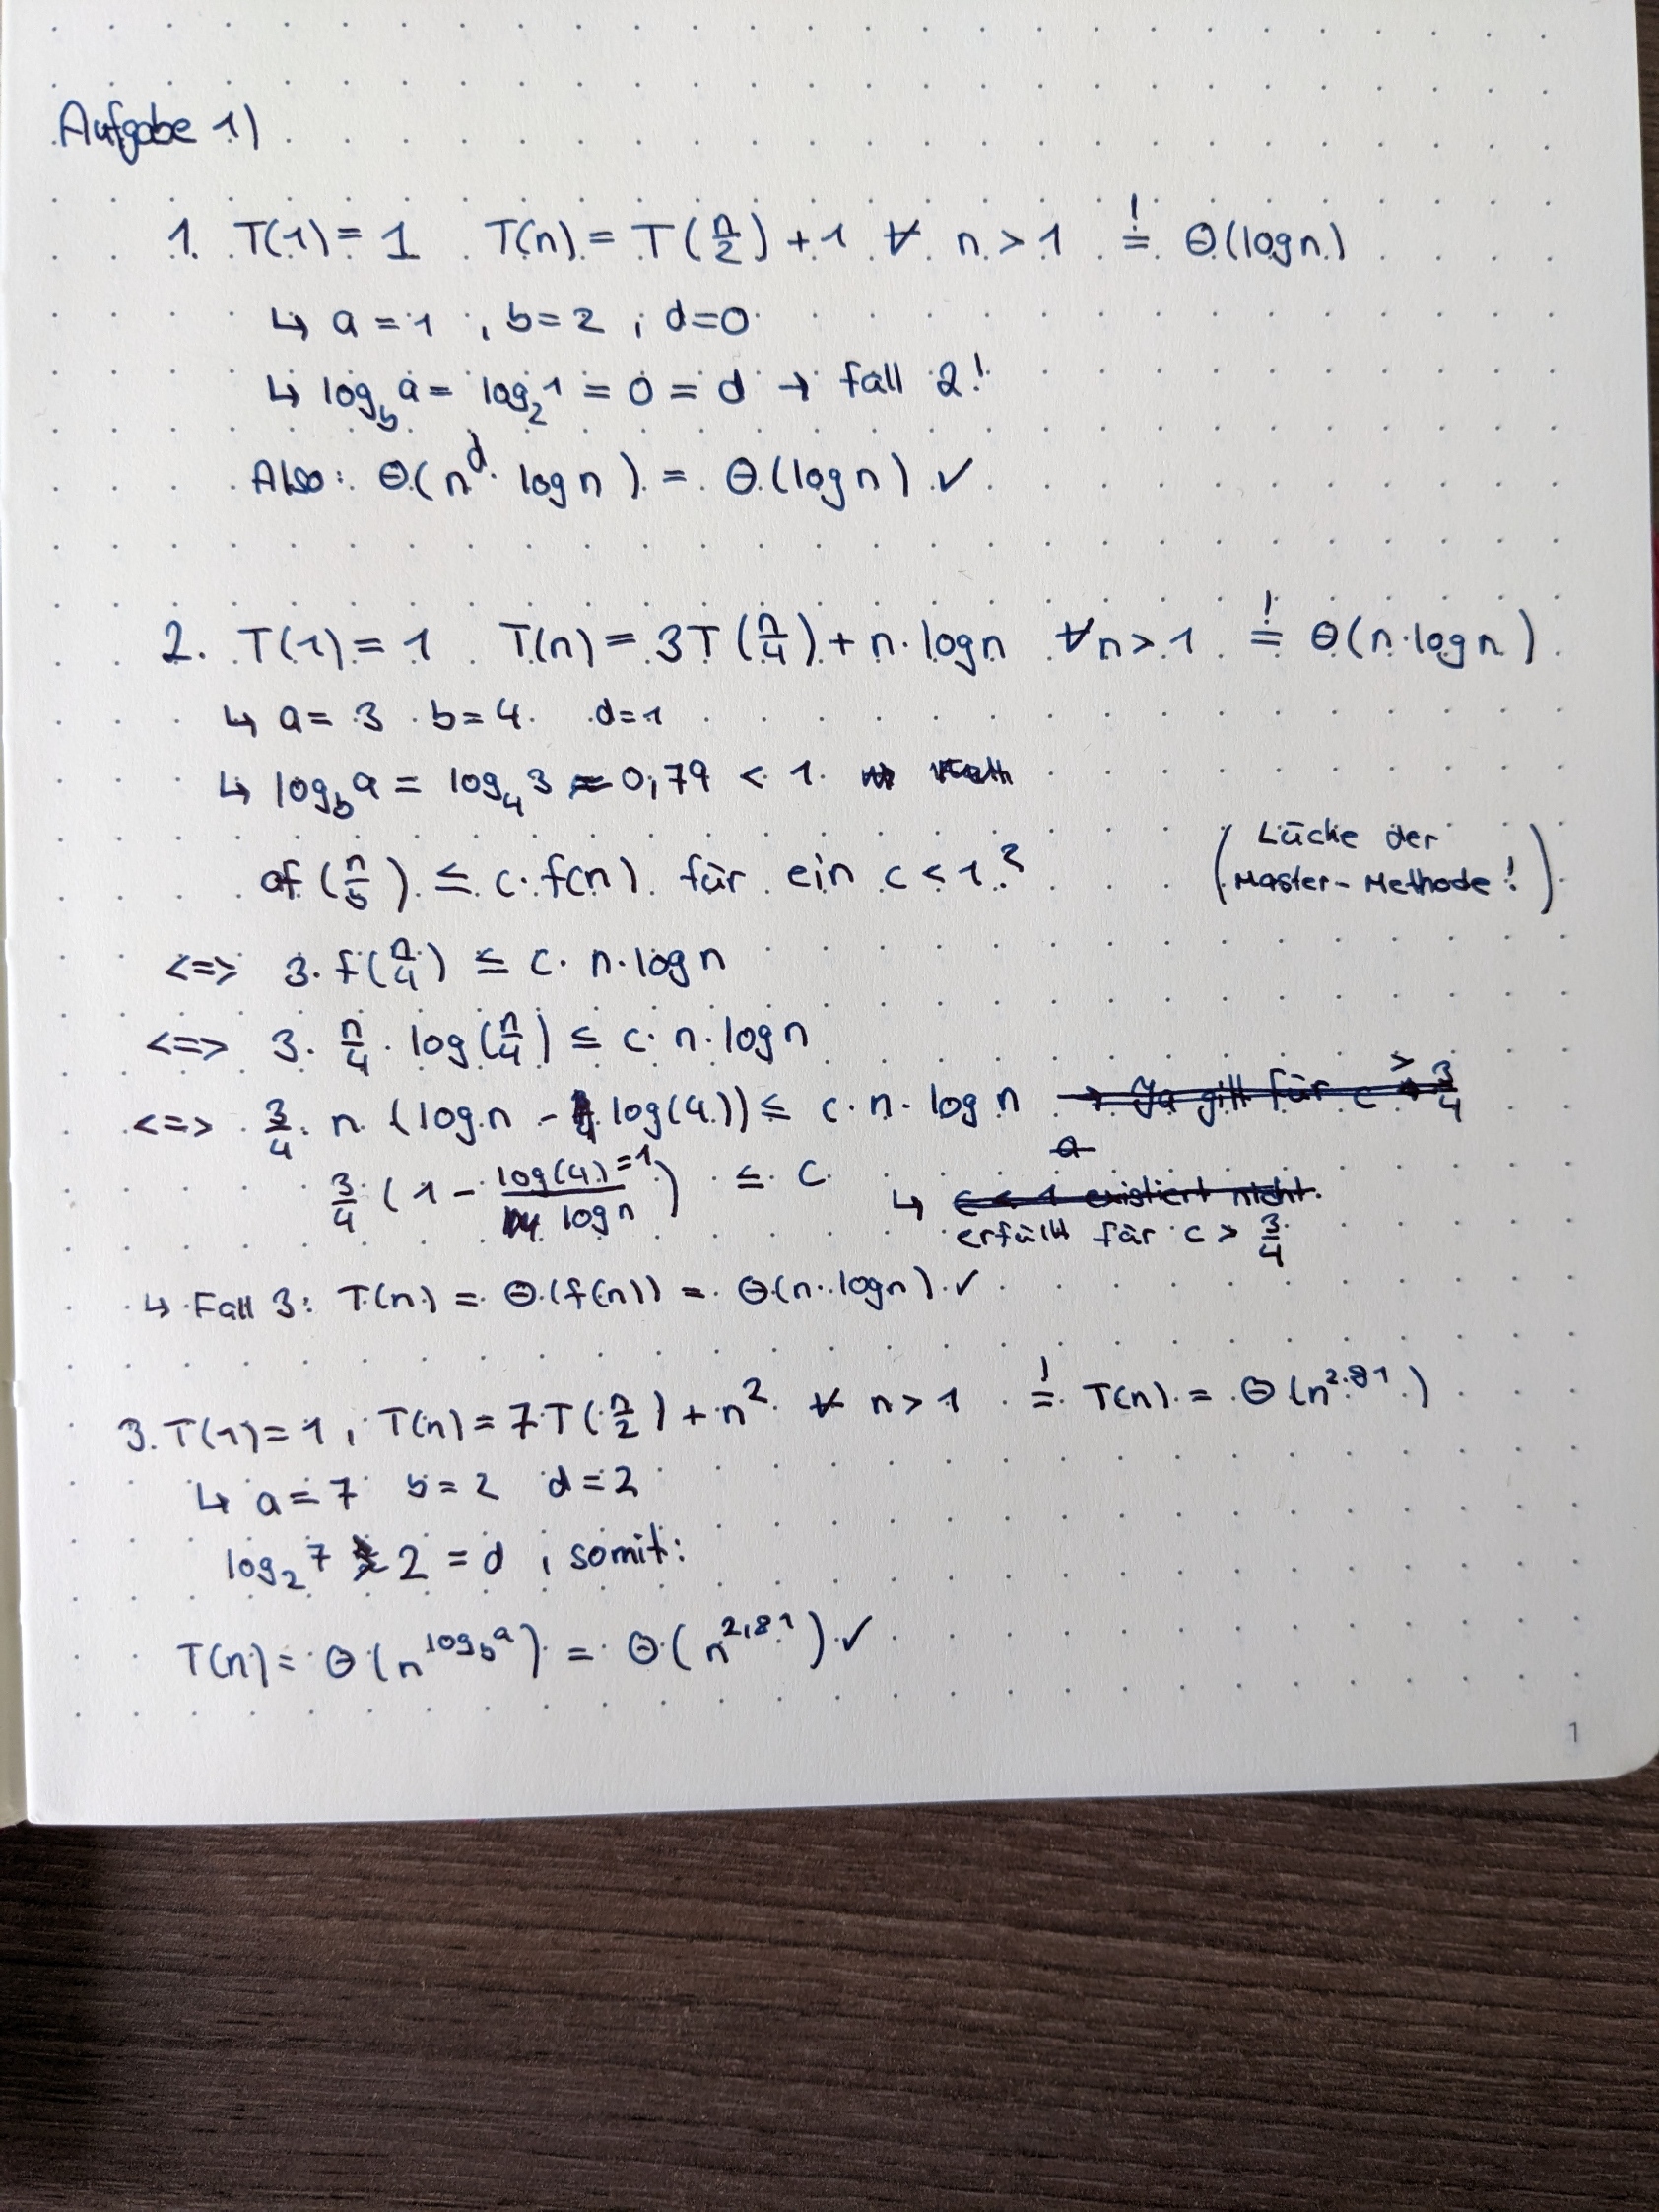 Aufgabe 1)
1. T(1) = 1 T(n) = T(n/2) + 1 ∀ n > 1 =! Θ(log n)
↳ a = 1 , b = 2 , d = 0
↳ log_b a = log_2 1 = 0 = d → Fall 2!
Also: Θ(n^d · log n) = Θ(log n) ✓
2. T(1) = 1 T(n) = 3T(n/4) + n · log n ∀ n > 1 =! Θ(n · log n)
↳ a = 3 b = 4 d = 1
↳ log_b a = log_4 3 ≈ 0,79 < 1
af(n/b) ≤ c · f(n) für ein c < 1? (Lücke der
Master-Methode!)
<=> 3 · f(n/4) ≤ c · n · log n
<=> 3 · n/4 · log(n/4) ≤ c · n · log n
<=> 3/4 · n (log n - log(4)) ≤ c · n · log n → Ja gilt für c > 3/4
3/4 (1 - log(4)=1 / log n) ≤ c
↳ c < 1 existiert nicht.
erfüllt für c > 3/4
↳ Fall 3: T(n) = Θ(f(n)) = Θ(n · log n) ✓
3. T(1) = 1 , T(n) = 7T(n/2) + n² ∀ n > 1 =! T(n) = Θ(n^2.81)
↳ a = 7 b = 2 d = 2
log_2 7 2 = d , somit:
T(n) = Θ(n^log_b a) = Θ(n^2,81) ✓
1